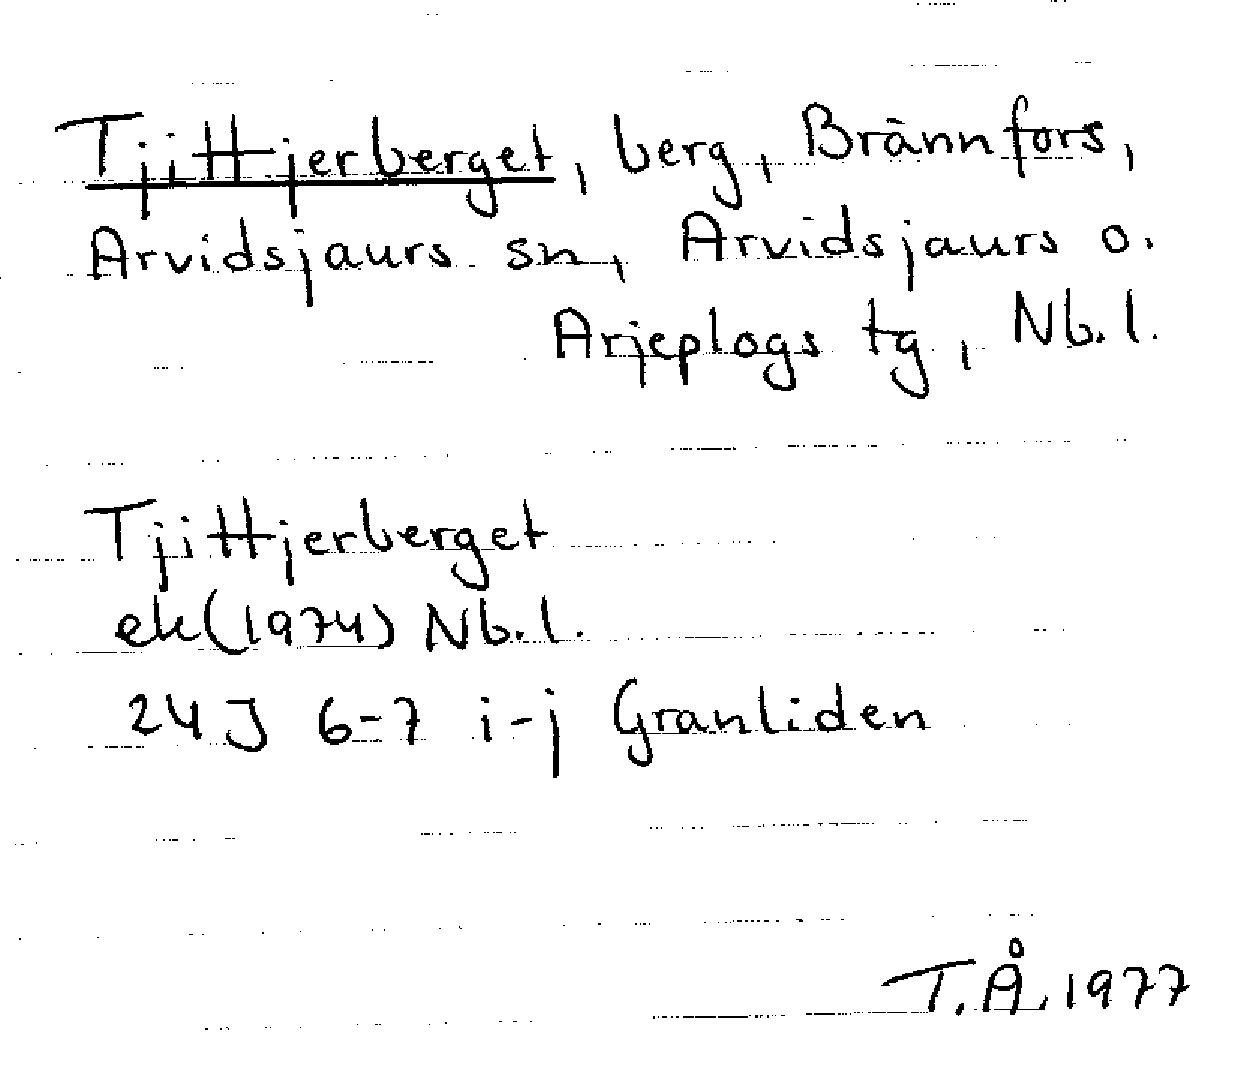 Tjittjerberget, berg, Brännfors,
Arvidsjaurs sn, Arvidsjaurs o.
Arjeplogs tg, Nb.l.
Tjittjerberget
ek(1974) Nb.l.
24J 6-7 i-j Granliden
T.Å. 1977